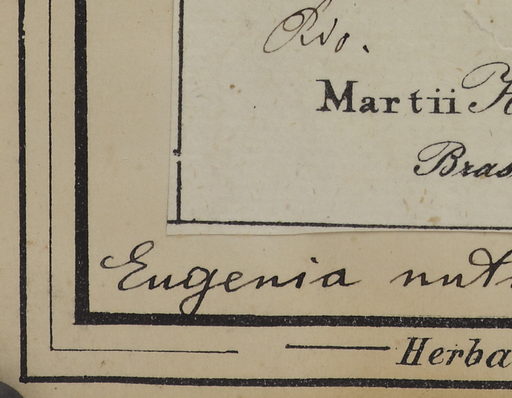 Rio.
Martii H
Bras
Eugenia nut
Herba